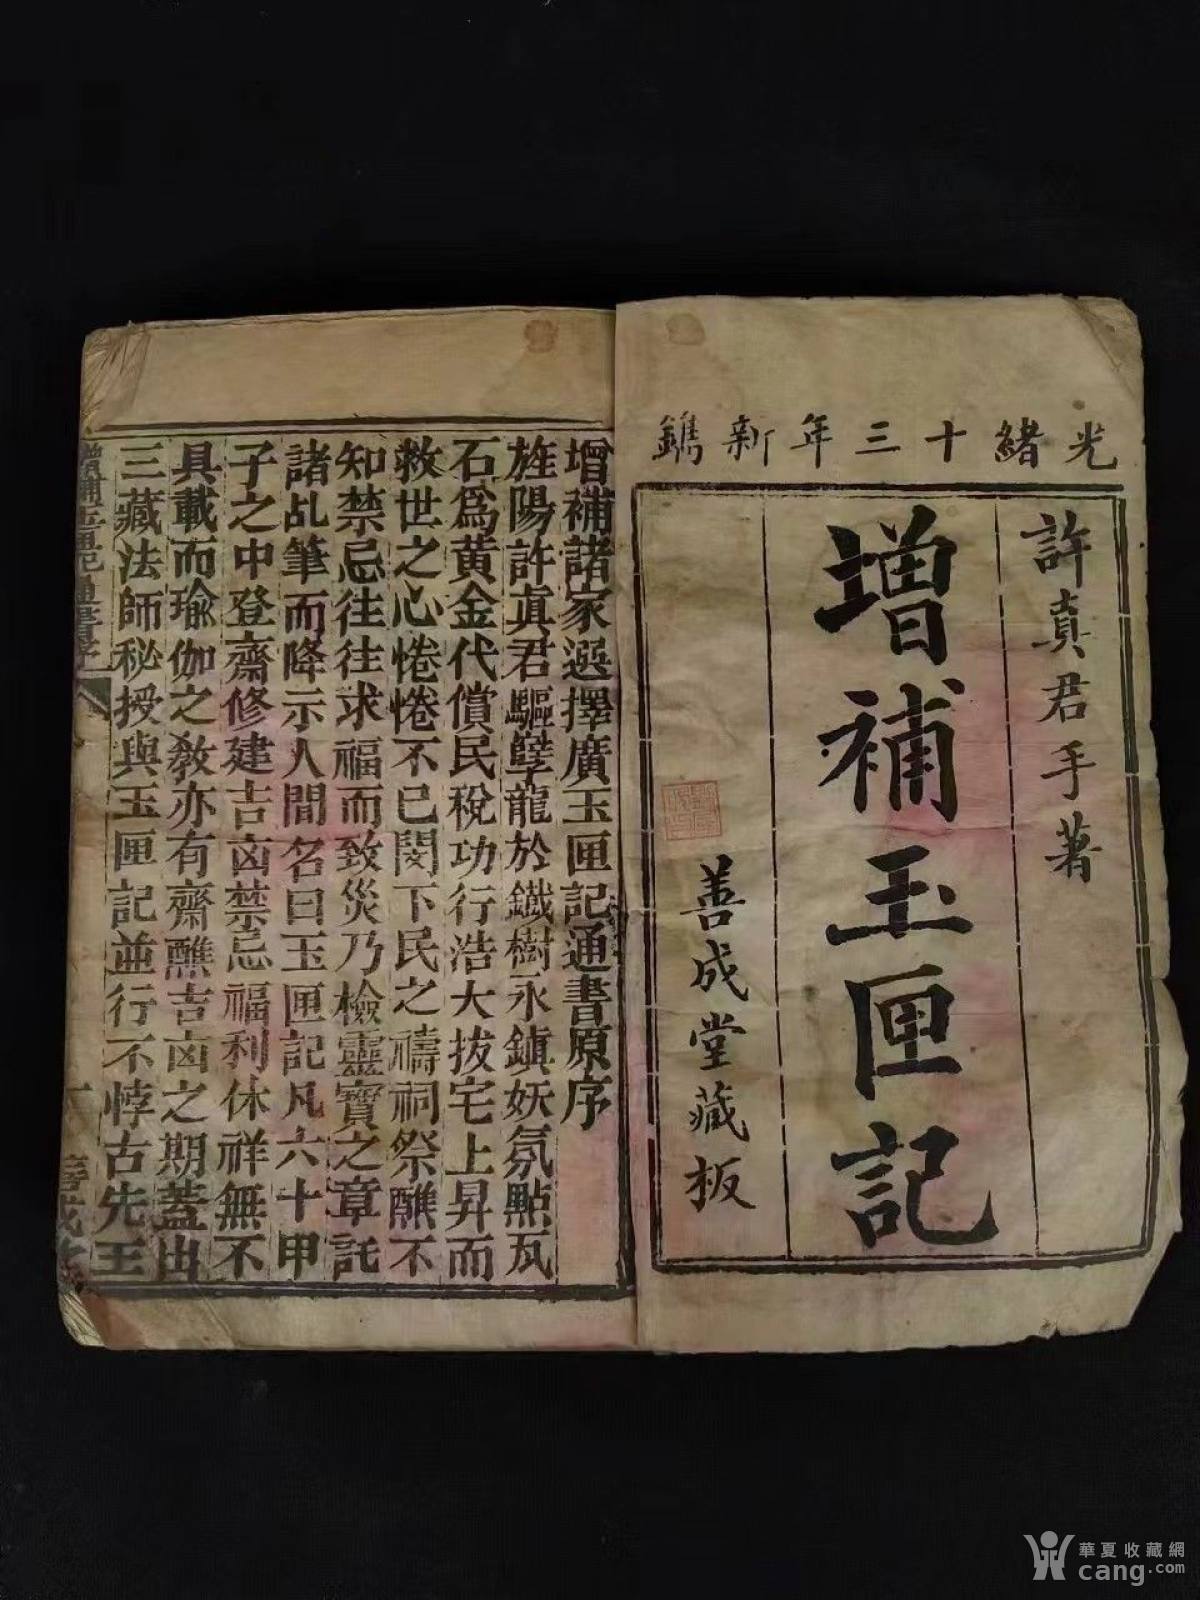 光緒十三年新鐫
許真君手著
增補玉匣記
善成堂藏板
增補諸家選擇廣玉匣記通書原序
旌陽許眞君驅孽龍於鐵樹永鎮妖氛點瓦
石爲黃金代償民稅功行浩大拔宅上昇而
救世之心惓惓不已閔下民之禱祠祭醮不
知禁忌往往求福而致災乃檢靈寶之章託
諸乩筆而降示人間名曰玉匣記凡六十甲
子之中登齋修建吉凶禁忌福利休祥無不
具載而瑜伽之教亦有齋醮吉凶之期蓋出
三藏法師秘授與玉匣記並行不悖古先王
增補玉匣記通書序
一
善成堂
華夏收藏網
cang.com